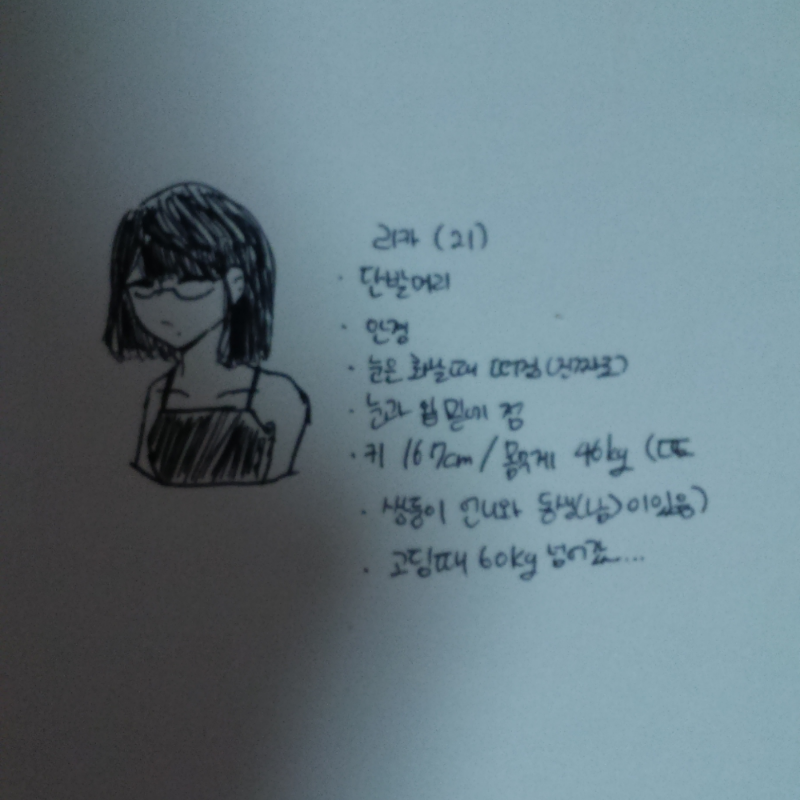 리카 (21)
· 단발머리
· 안경
· 눈은 화날때 떠짐(진짜로)
· 눈과 입 밑에 점
· 키 167cm / 몸무게 46kg (
· 쌍둥이 언니와 동생(남)이있음)
· 고딩때 60kg 넘어갔...